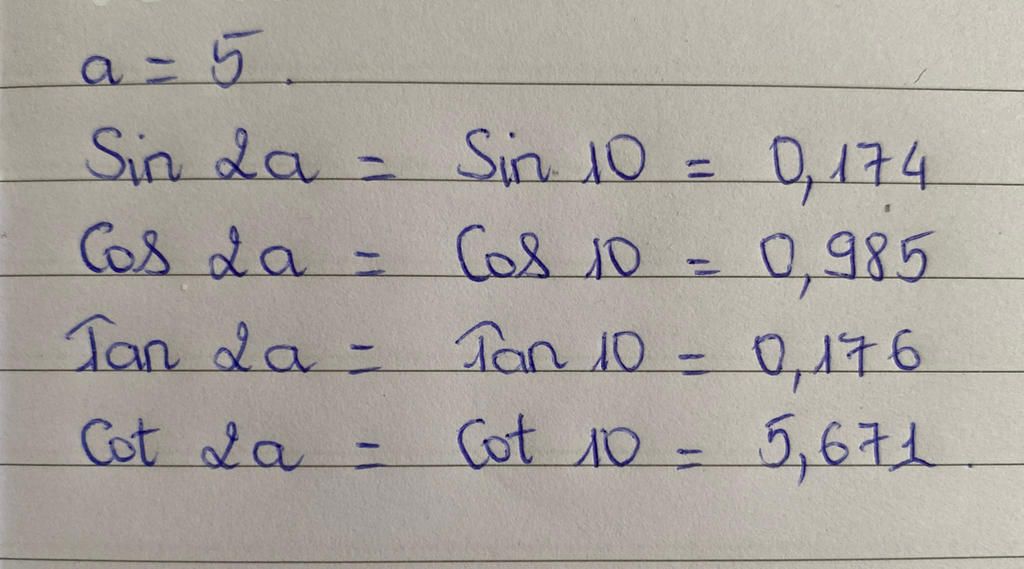 a = 5.
Sin 2a = Sin 10 = 0,174
Cos 2a = Cos 10 = 0,985
Tan 2a = Tan 10 = 0,176
Cot 2a = Cot 10 = 5,671.